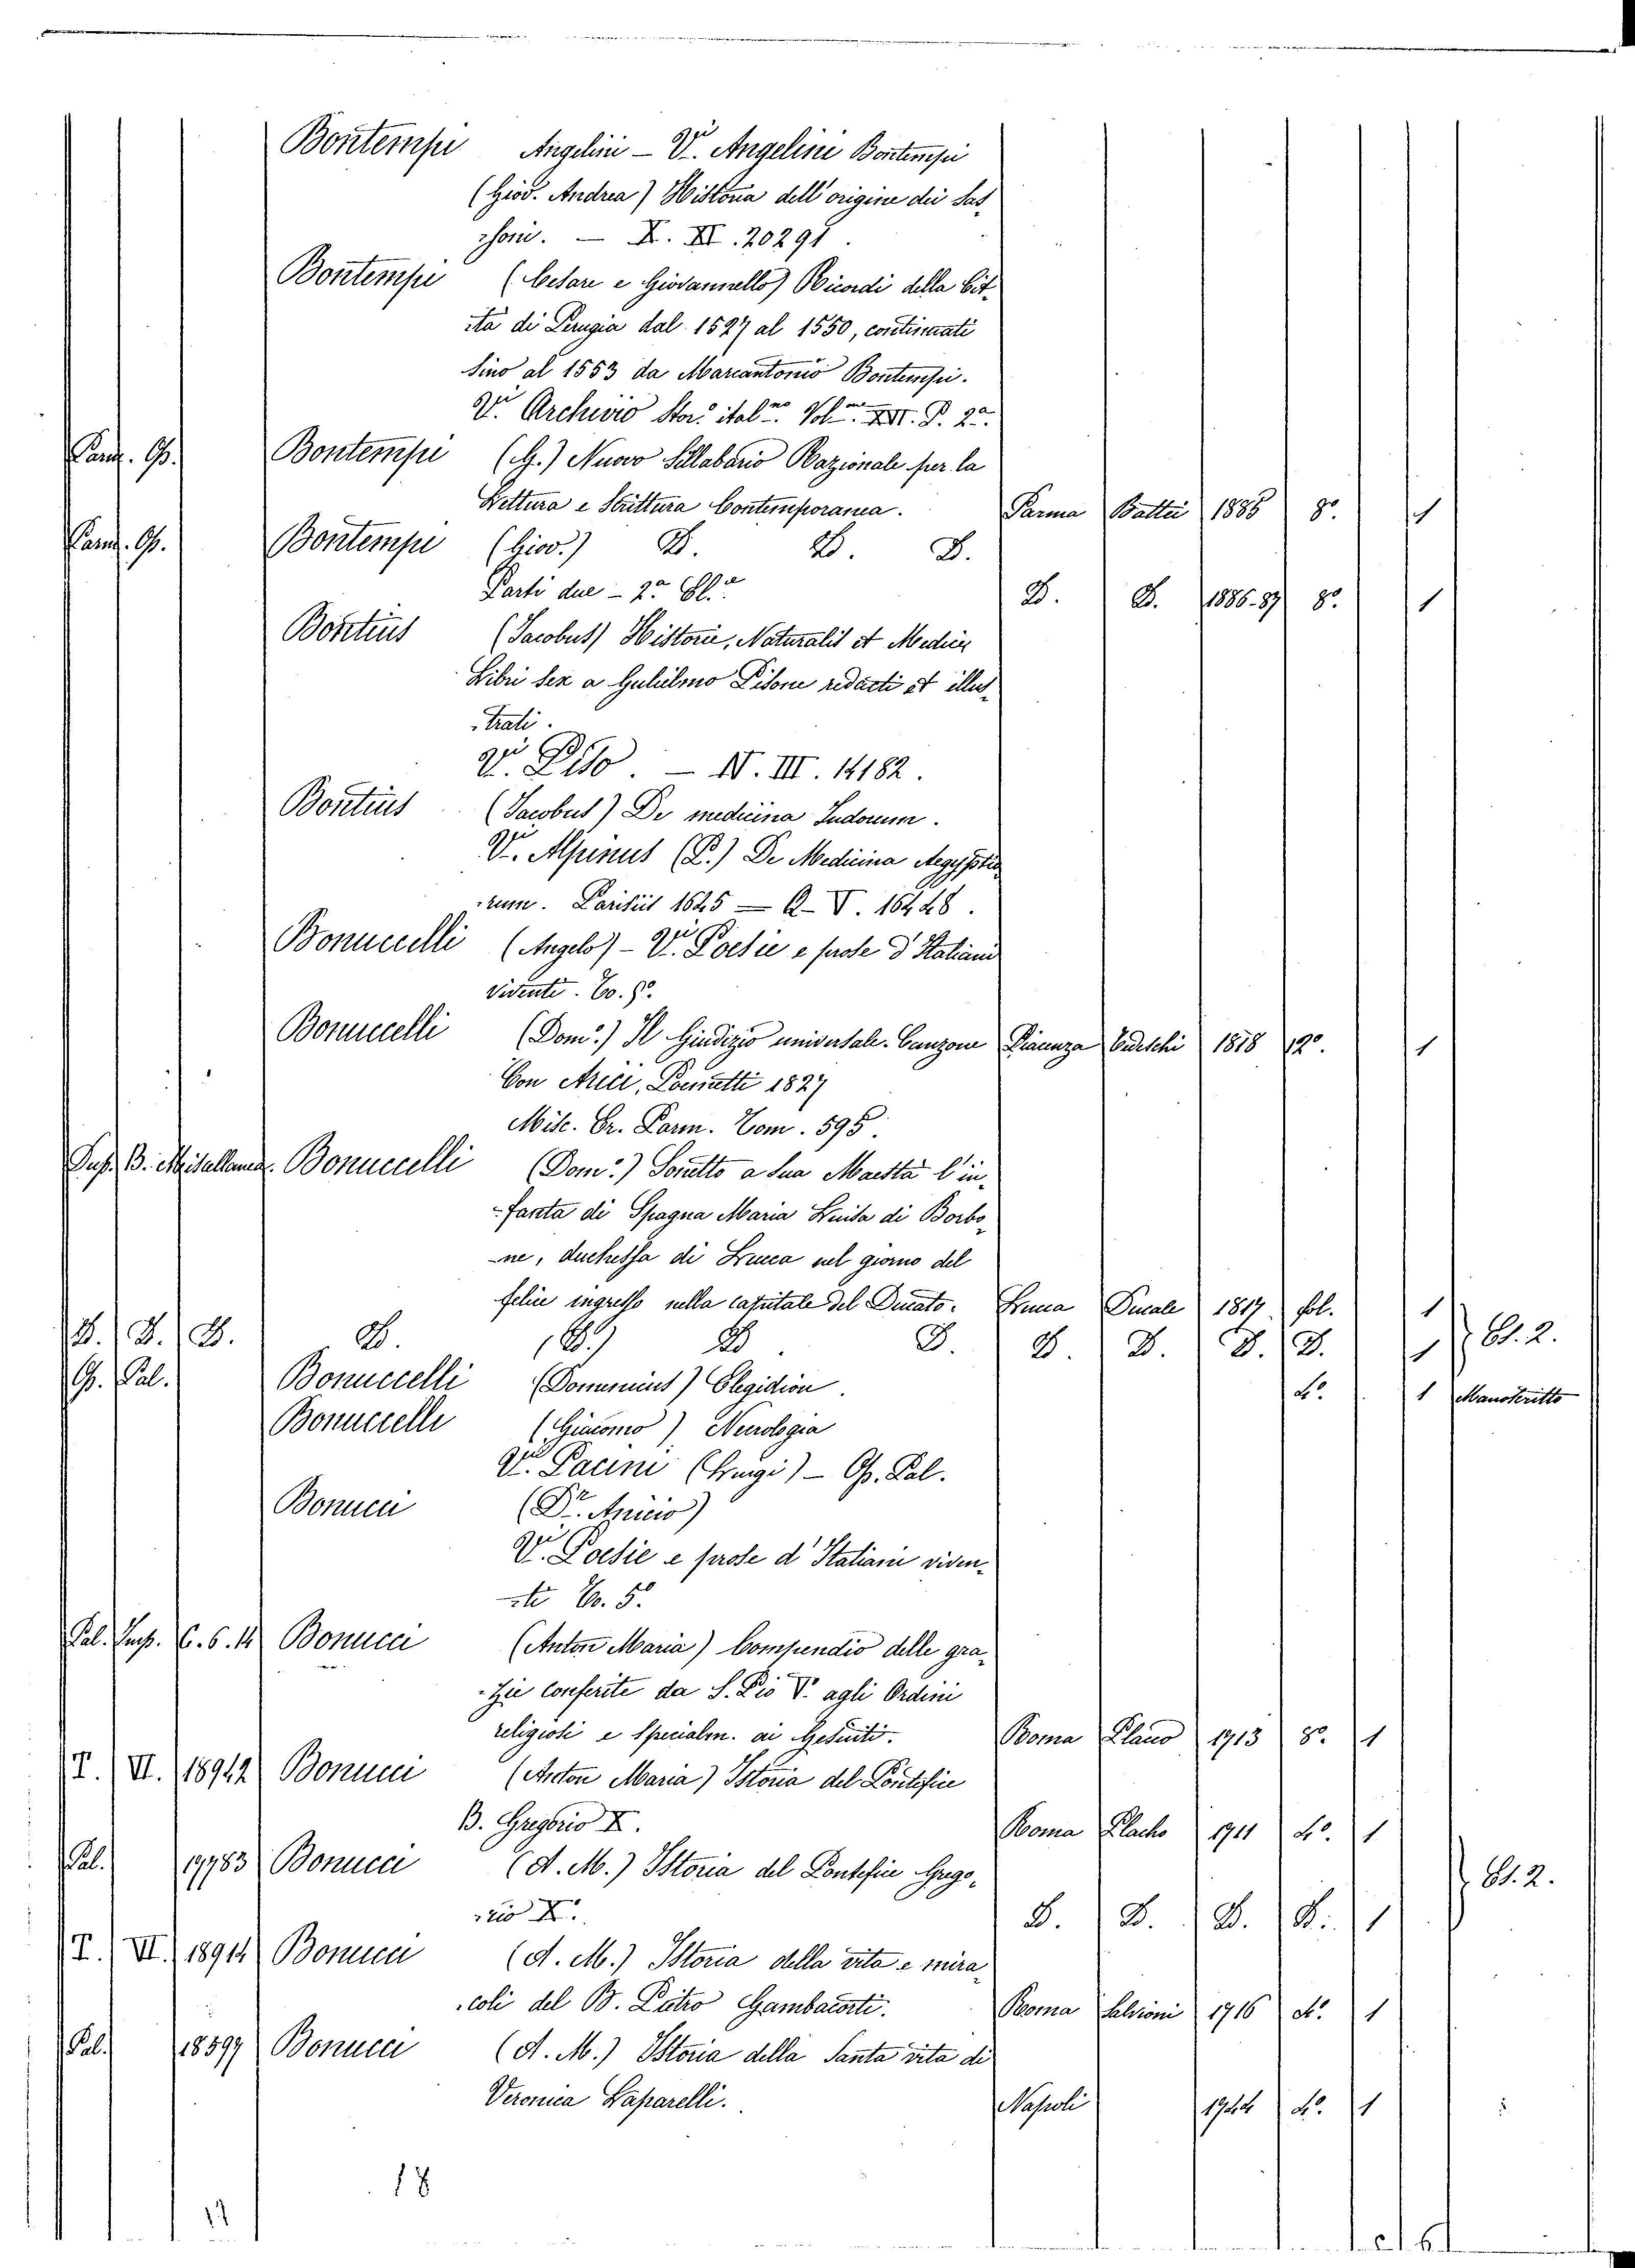 Bontempi Angelini - V. Angelini Bontempi
(Giov. Andrea) Historia dell'origine dei Sas-
-soni. - X. XI. 20291.
Bontempi (Cesare e Giovannello) Ricordi della Cit-
-tà di Perugia dal 1527 al 1550, continuati
sino al 1553 da Marcantonio Bontempi.
V. Archivio Stor. ital.no Vol.me XVI. P. 2a.
Parm. Op. Bontempi (G.) Nuovo Sillabario Razionale per la
Lettura e Scrittura Contemporanea. Parma Battei 1885 8o. 1
Parm. Op. Bontempi (Giov.) D. D. D.
Parti due - 2a D. D. 1886-87 8o. 1
Bontius (Jacobus) Historie, Naturalis et Medice
Libri sex a Gulielmo Pisone redacti et illus-
-trati.
V. Piso. - N. III. 14182.
Bontius (Jacobus) De medicina Indorum.
V. Alpinus (P.) De Medicina Aegyptio-
-rum. Parisiis 1645 = Q - V. 16448.
Bonuccelli (Angelo) - V. Poesie e prose d'Italiani
Viventi. To. 8o.
Bonuccelli (Dom.o) Il Giudizio universale. Canzone Piacenza 1818 12o. 1
Con Arici, Poemetti 1827
Misc. Er. Parm. Tom. 595.
Sup. B. Miscellanea. Bonuccelli (Dom.o) Sonetto a Sua Maestà l'in-
-fanta di Spagna Maria Luisa di Borbo-
-ne, duchessa di Lucca nel giorno del
felice ingresso nella capitale del Ducato. Lucca Ducale 1817 fol. 1
D. D. D. D. (D.) D. D. D. D. D. D. 1 Es. 2.
Op. Pal. Bonuccelli (Dominicus) Elegidion. 4o. 1 Manoscritto
Bonuccelli (Giacomo) Necrologia
V. Pacini (Luigi) - Op. Pal.
Bonucci (Dr. Anicio)
V. Poesie e prose d'Italiani viven-
-ti To. 5o.
Pal. Sup. C. 6. 14 Bonucci (Anton Maria) Compendio delle gra-
-zie conferite da S. Pio V. agli Ordini
religiosi e specialm. ai Gesuiti. Roma Placo 1713 8o. 1
T. VII. 18912 Bonucci (Anton Maria) Istoria del Pontefice
B. Gregorio X. Roma Placho 1711 4o. 1
Pal. 17783 Bonucci (A. M.) Istoria del Pontefice Grego-
-rio X. D. D. D. D. 1 Es. 2.
T. VII. 18914 Bonucci (A. M.) Istoria della vita e mira-
-coli del B. Pietro Gambacorti. Roma Salvioni 1716 4o. 1
Pal. 18597 Bonucci (A. M.) Istoria della Santa vita di
Veronica Laparelli. Napoli 1744 4o. 1
18
17